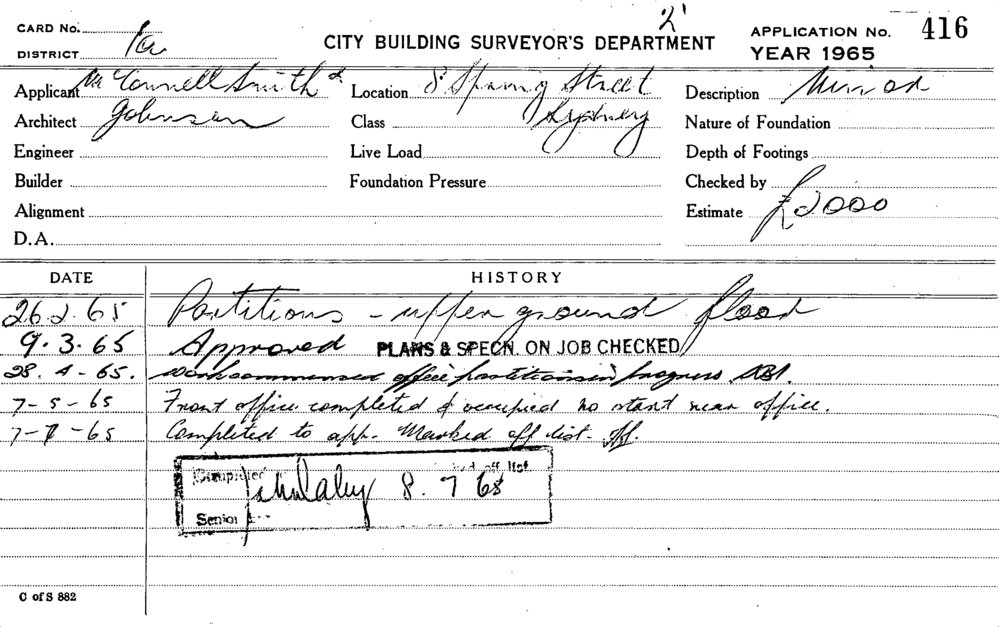 2'
CARD No.
DISTRICT 1a
CITY BUILDING SURVEYOR'S DEPARTMENT
APPLICATION No. 416
YEAR 1965
Applicant McConnell Smith &
Location 8 Spring Street
Description Minor
Architect Johnson
Class Sydney
Nature of Foundation
Engineer
Live Load
Depth of Footings
Builder
Foundation Pressure
Checked by
Alignment
Estimate £2000
D.A.
DATE HISTORY
26.2.65 Partitions - upper ground floor
9.3.65 Approved PLANS & SPECN. ON JOB CHECKED
28.4-65. Work commenced office partitions in progress
7-5-65 Front office completed & occupied no start rear office.
7-7-65 Completed to app. Marked off list.
Completed off list
8.7 65
Senior
C of S 882